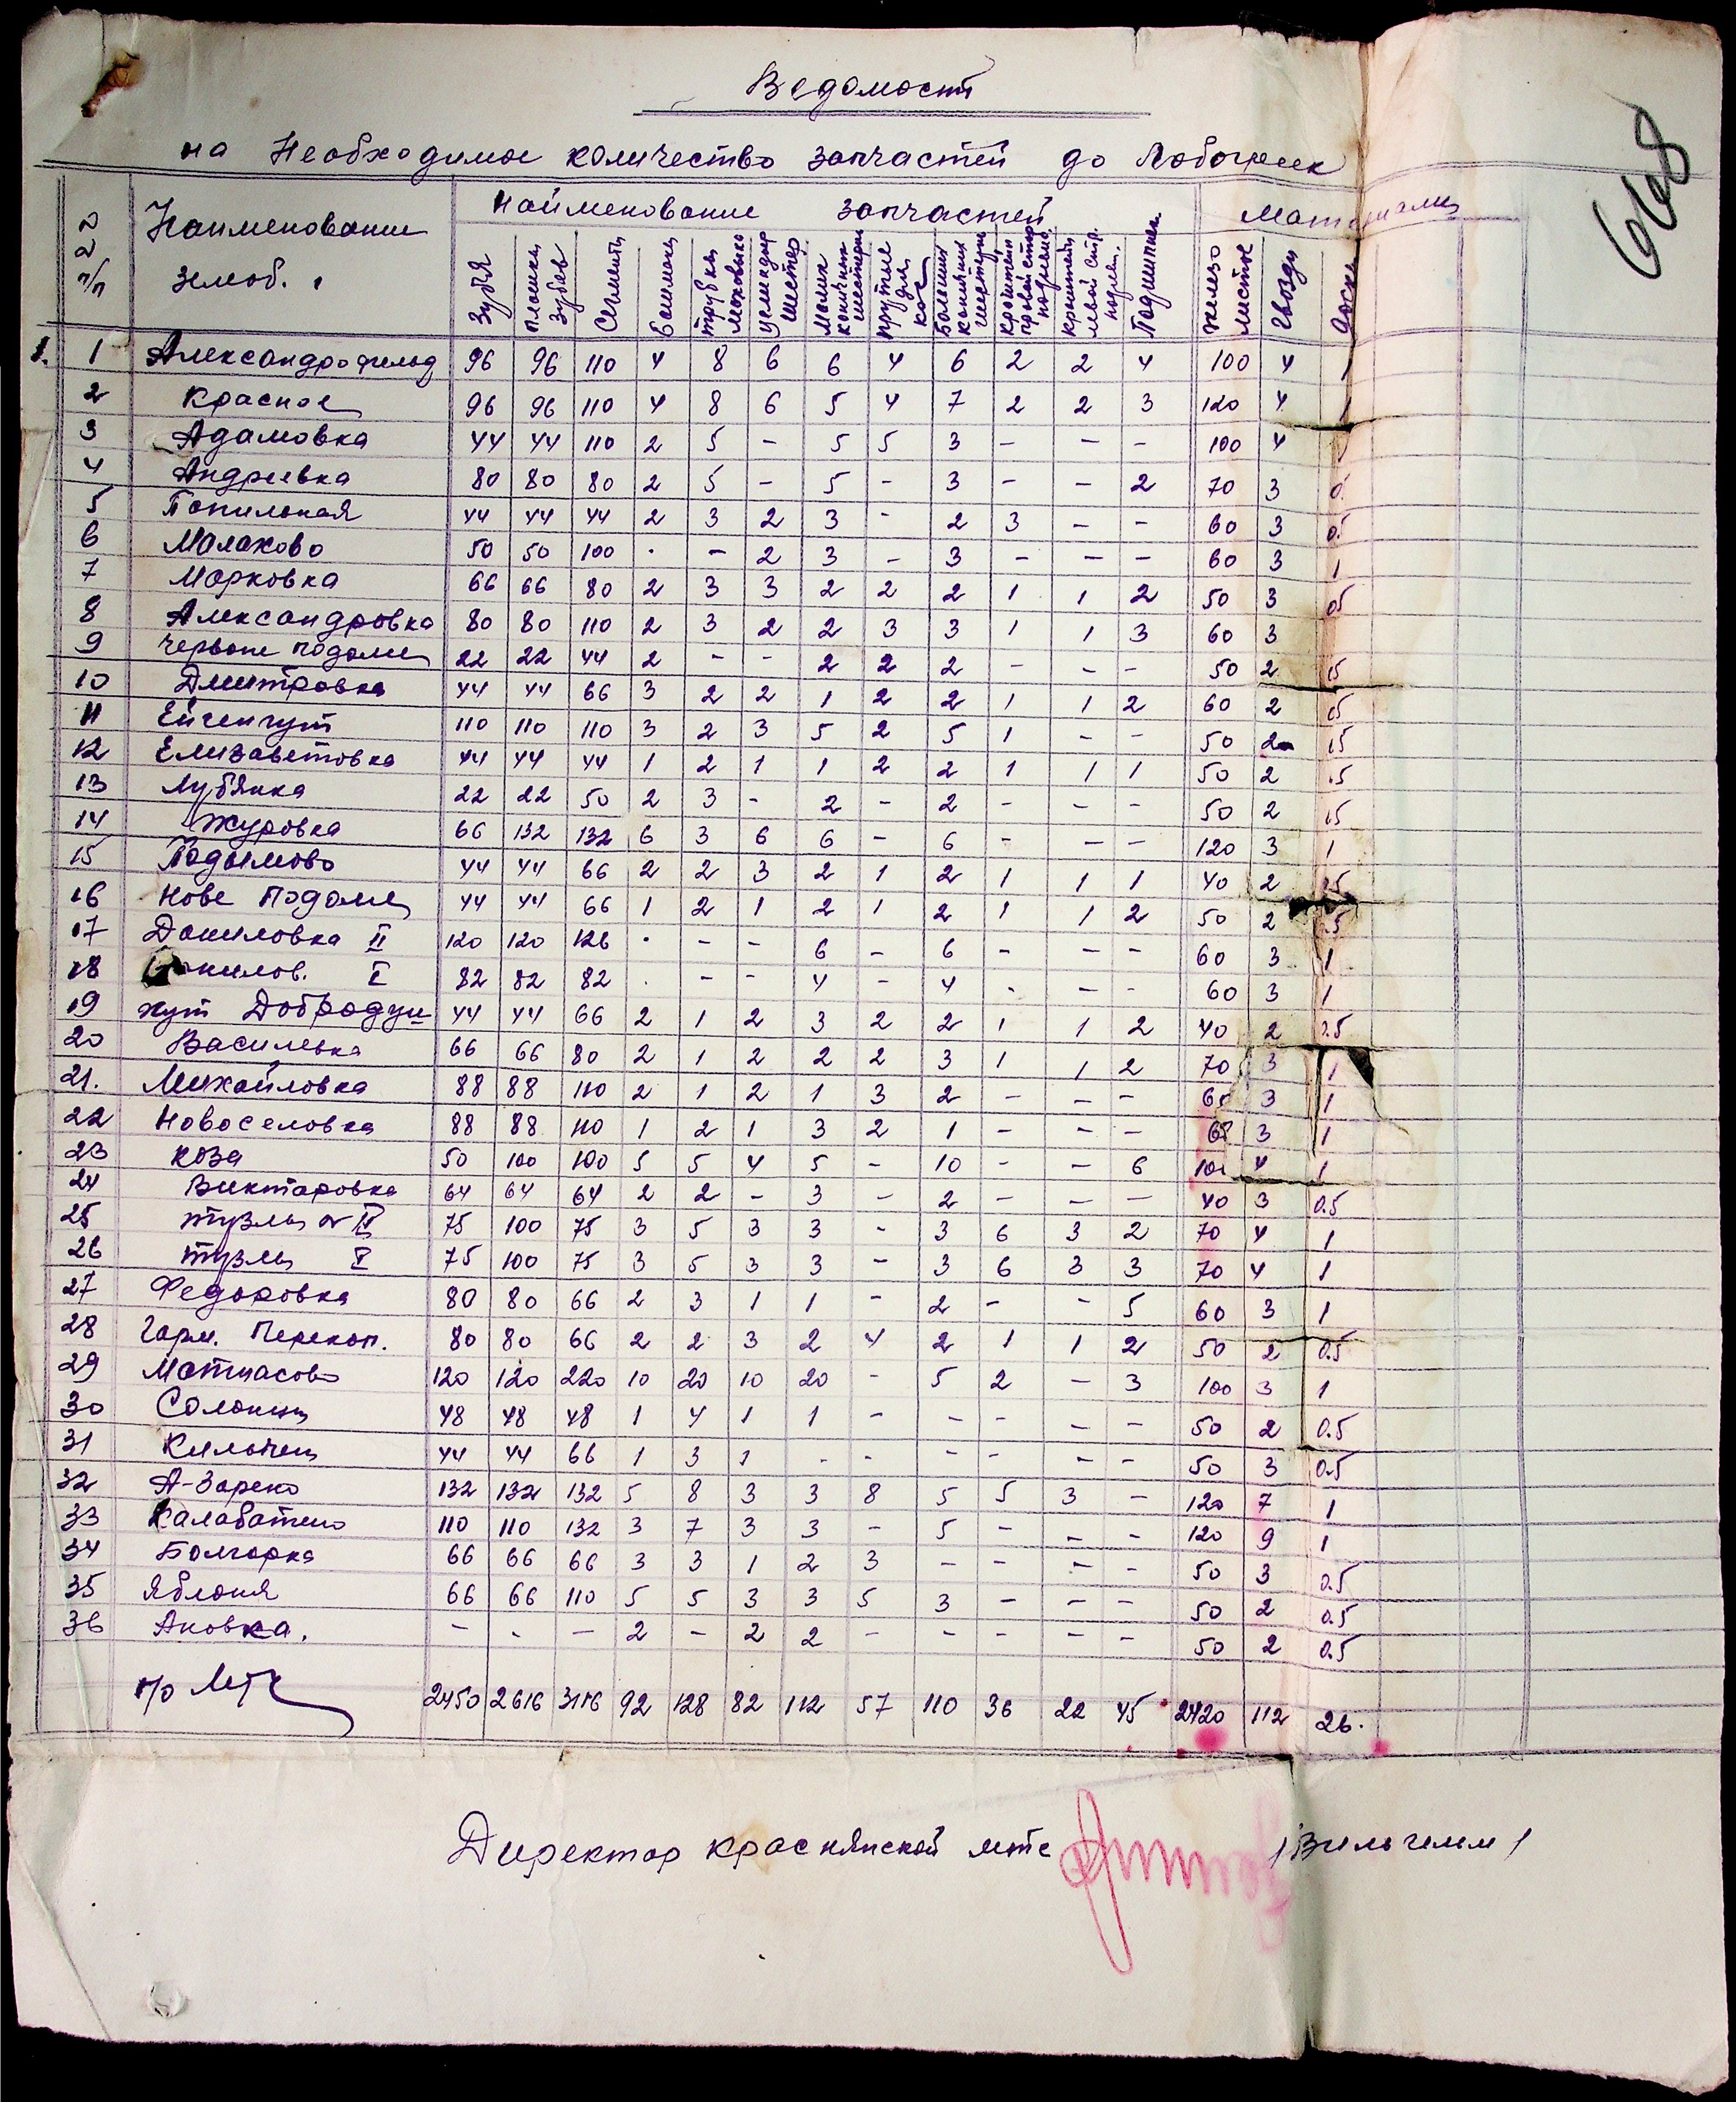 668
Ведомость
на Необходимое количество запчастей до Лобогреек
№№ п/п
Наименование землоб.
Наименование запчастей
Материалы
Зубья
Сегменты
Башмаки
Подшипник
железо листов
Гвозди
доски
1 Александрофельд 96 96 110 4 8 6 6 4 6 2 2 4 100 4 1
2 Красное 96 96 110 4 8 6 5 4 7 2 2 3 120 4 1
3 Адамовка 44 44 110 2 5 - 5 5 3 - - - 100 4
4 Андреевка 80 80 80 2 5 - 5 - 3 - - 2 70 3
5 Попильная 44 44 44 2 3 2 3 - 2 3 - - 60 3 0.5
6 Малахово 50 50 100 · - 2 3 - 3 - - - 60 3 1
7 Марковка 66 66 80 2 3 3 2 2 2 1 1 2 50 3 05
8 Александровка 80 80 110 2 3 2 2 3 3 1 1 3 60 3
9 Червоне Подолле 22 22 44 2 - - 2 2 2 - - - 50 2 05
10 Дмитровка 44 44 66 3 2 2 1 2 2 1 1 2 60 2 05
11 Ейгенгут 110 110 110 3 2 3 5 2 5 1 - - 50 2 05
12 Елизаветовка 44 44 44 1 2 1 1 2 2 1 1 1 50 2 0.5
13 Лубянка 22 22 50 2 3 - 2 - 2 - - - 50 2 05
14 Журовка 66 132 132 6 3 6 6 - 6 - - - 120 3 1
15 Подымово 44 44 66 2 2 3 2 1 2 1 1 1 40 2 0.5
16 Нове Подолле 44 44 66 1 2 1 2 1 2 1 1 2 50 2 0.5
17 Даниловка II 120 120 126 · - - 6 - 6 - - - 60 3 1
18 Данилов. I 82 82 82 · - - 4 - 4 - - - 60 3 1
19 хут Добродуш 44 44 66 2 1 2 3 2 2 1 1 2 40 2 0.5
20 Василевка 66 66 80 2 1 2 2 2 3 1 1 2 70 3 1
21. Михайловка 88 88 110 2 1 2 1 3 2 - - - 60 3 1
22 Новоселовка 88 88 110 1 2 1 3 2 1 - - - 60 3 1
23 Коза 50 100 100 5 5 4 5 - 10 - - 6 100 4 1
24 Викторовка 64 64 64 2 2 - 3 - 2 - - - 40 3 0.5
25 Тузлы II 75 100 75 3 5 3 3 - 3 6 3 2 70 4 1
26 Тузлы I 75 100 75 3 5 3 3 - 3 6 3 3 70 4 1
27 Федоровка 80 80 66 2 3 1 1 - 2 - - 5 60 3 1
28 Гарм. Перекоп. 80 80 66 2 2 3 2 4 2 1 1 2 50 2 0.5
29 Матиасово 120 120 220 10 20 10 20 - 5 2 - 3 100 3 1
30 Солонец 48 48 48 1 4 1 1 - - - - - 50 2 0.5
31 44 44 66 1 3 1 · - - - - - 50 3 0.5
32 А-Зареко 132 132 132 5 8 3 3 8 5 5 3 - 120 7 1
33 Калабатено 110 110 132 3 7 3 3 - 5 - - - 120 9 1
34 Болгарка 66 66 66 3 3 1 2 3 - - - - 50 3 0.5
35 Яблоня 66 66 110 5 5 3 3 5 3 - - - 50 2 0.5
36 Ановка. - - - 2 - 2 2 - - - - - 50 2 0.5
п/о МТС 2450 2616 3116 92 128 82 112 57 110 36 22 45 2420 112 26.
Директор краснянской мтс /Вильгельм/